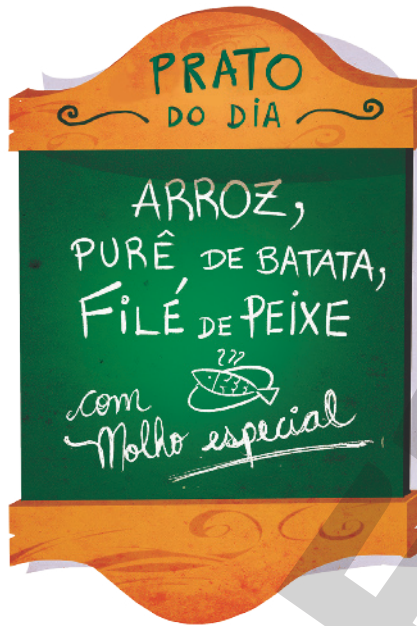 PRATO
DO DIA
ARROZ,
PURÊ DE BATATA,
FILÉ DE PEIXE
com
Molho especial